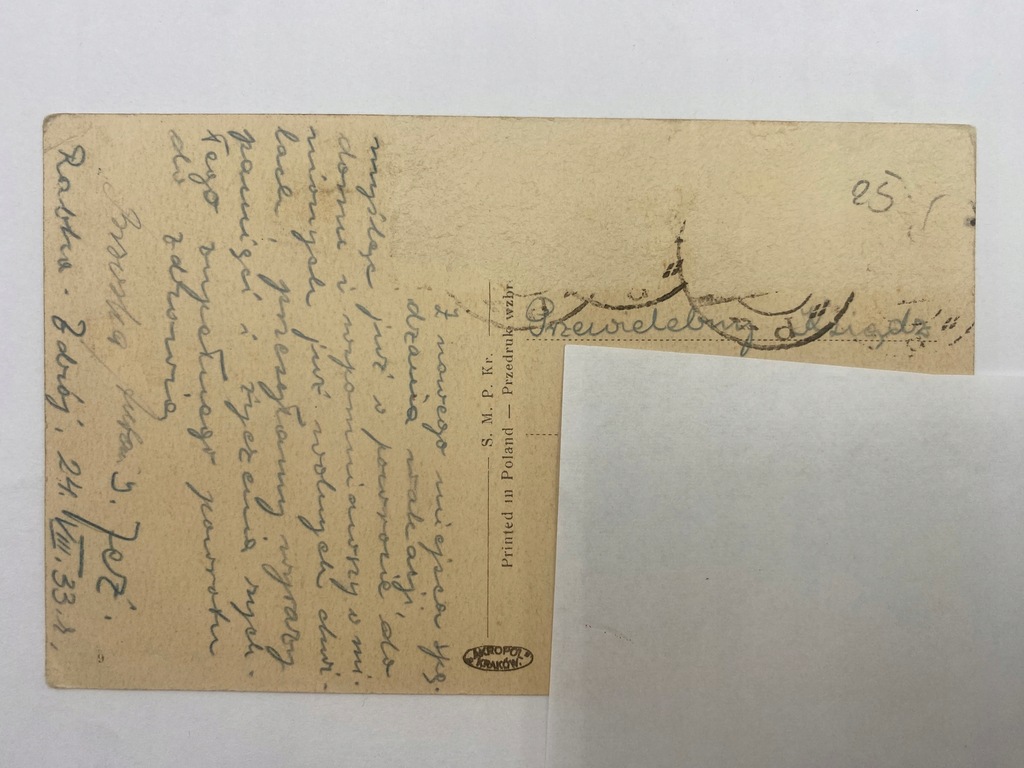 Z nowego miejsca spę-
dzania wakacji,
myśląc już o powrocie do
domu i wspomniawszy o mi-
nionych już wolnych chwi-
lach, przesyłamy wyrazy
pamięci i życzenia rych-
łego i zupełnego powrotu
do zdrowia
J. Jeż.
Rabka-Zdrój, 24/VIII.33 r.
S. M. P. Kr.
Printed in Poland — Przedruk wzbr.
"AKROPOL"
KRAKÓW.
25
Przewielebny Ksiądz